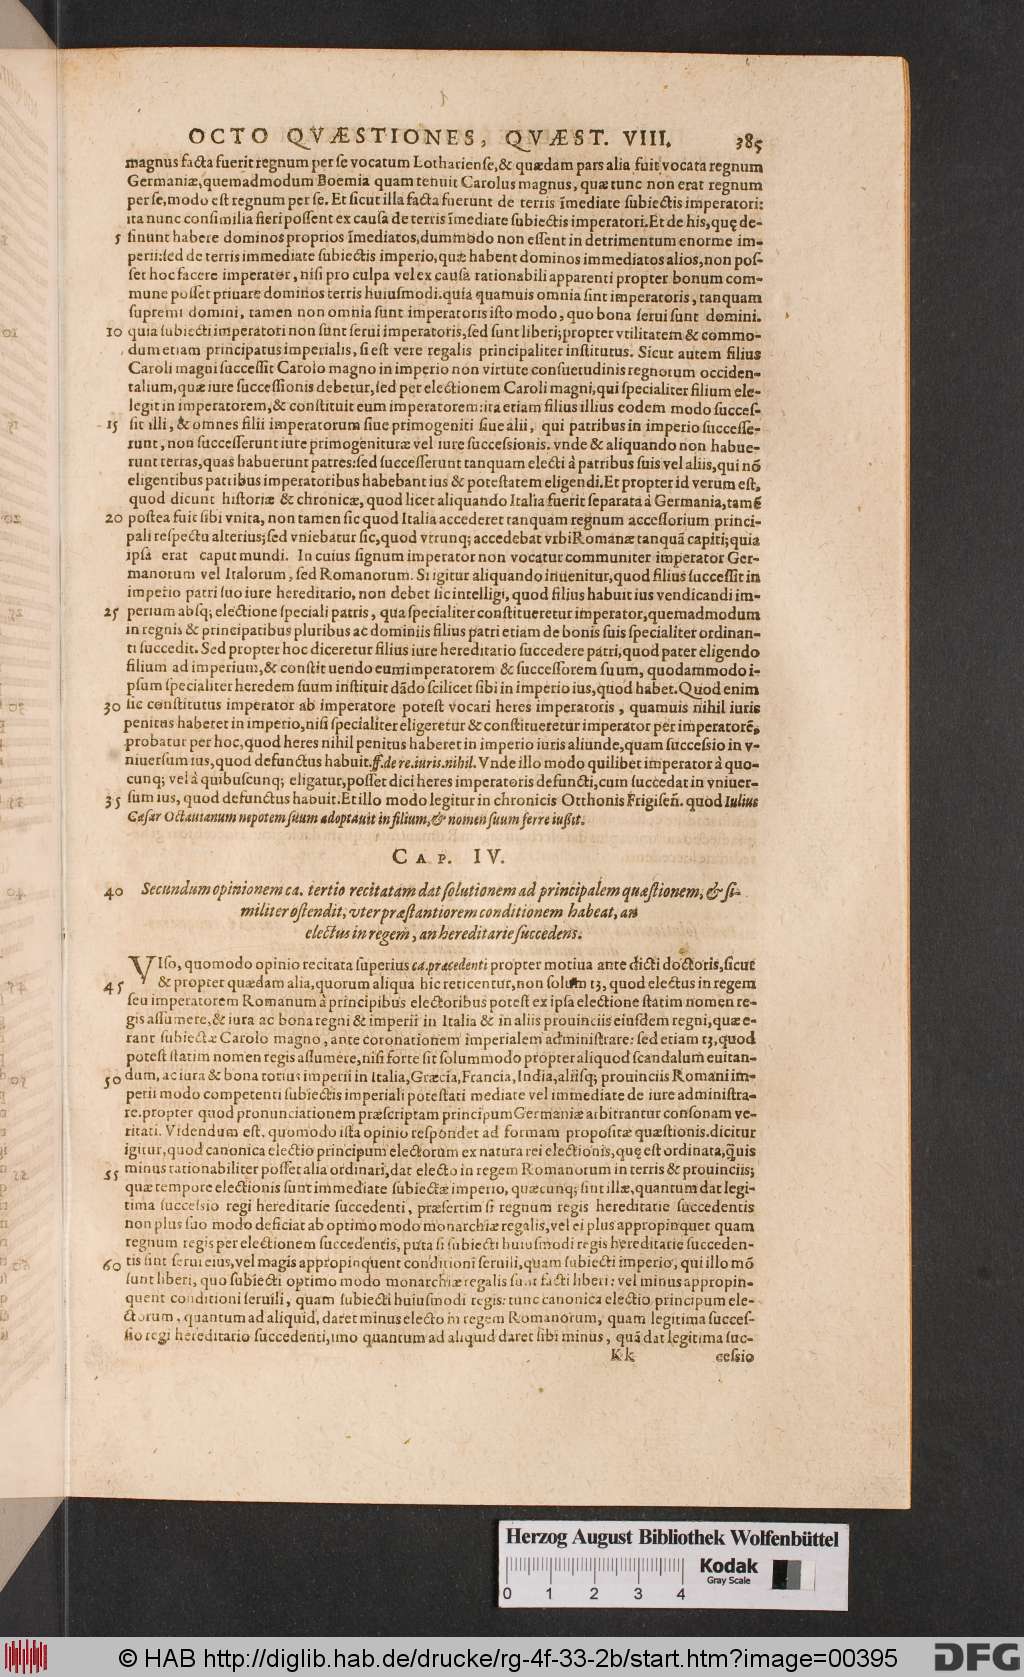 OCTO QVÆSTIONES, QVÆST. VIII. 385
magnus facta fuerit regnum per se vocatum Lothariense,& quædam pars alia fuit vocata regnum
Germaniæ,quemadmodum Boemia quam tenuit Carolus magnus, quæ tunc non erat regnum
per se,modo est regnum per se. Et sicut illa facta fuerunt de terris īmediate subiectis imperatori:
ita nunc consimilia fieri possent ex causa de terris īmediate subiectis imperatori.Et de his,quę de-
5 sinunt habere dominos proprios īmediatos,dummodo non essent in detrimentum enorme im-
perii:sed de terris immediate subiectis imperio,quæ habent dominos immediatos alios,non pos-
set hoc facere imperator, nisi pro culpa vel ex causa rationabili apparenti propter bonum com-
mune posset priuare dominos terris huiusmodi.quia quamuis omnia sint imperatoris, tanquam
supremi domini, tamen non omnia sunt imperatoris isto modo, quo bona serui sunt domini.
10 quia subiecti imperatori non sunt serui imperatoris,sed sunt liberi;propter vtilitatem & commo-
dum etiam principatus imperialis, si est vere regalis principaliter institutus. Sicut autem filius
Caroli magni successit Carolo magno in imperio non virtute consuetudinis regnorum occiden-
talium,quæ iure successionis debetur,sed per electionem Caroli magni,qui specialiter filium ele-
legit in imperatorem,& constituit eum imperatorem:ita etiam filius illius eodem modo succes-
15 sit illi, & omnes filii imperatorum siue primogeniti siue alii, qui patribus in imperio successe-
runt, non successerunt iure primogenituræ vel iure successionis. vnde & aliquando non habue-
runt terras,quas habuerunt patres:sed successerunt tanquam electi à patribus suis vel aliis,qui nō
eligentibus patribus imperatoribus habebant ius & potestatem eligendi.Et propter id verum est,
quod dicunt historiæ & chronicæ, quod licet aliquando Italia fuerit separata à Germania,tamē
20 postea fuit sibi vnita, non tamen sic quod Italia accederet tanquam regnum accessorium princi-
pali respectu alterius;sed vniebatur sic,quod vtrunq; accedebat vrbi Romanæ tanquā capiti;quia
ipsa erat caput mundi. In cuius signum imperator non vocatur communiter imperator Ger-
manorum vel Italorum, sed Romanorum. Si igitur aliquando inuenitur,quod filius successit in
imperio patri suo iure hereditario, non debet sic intelligi, quod filius habuit ius vendicandi im-
25 perium absq; electione speciali patris, qua specialiter constitueretur imperator,quemadmodum
in regnis & principatibus pluribus ac dominiis filius patri etiam de bonis suis specialiter ordinan-
ti succedit. Sed propter hoc diceretur filius iure hereditatio succedere patri,quod pater eligendo
filium ad imperium,& constituendo eum imperatorem & successorem suum, quodammodo i-
psum specialiter heredem suum instituit dādo scilicet sibi in imperio ius,quod habet.Quod enim
30 sic constitutus imperator ab imperatore potest vocari heres imperatoris, quamuis nihil iuris
penitus haberet in imperio,nisi specialiter eligeretur & constitueretur imperator per imperatorē,
probatur per hoc,quod heres nihil penitus haberet in imperio iuris aliunde,quam successio in v-
niuersum ius,quod defunctus habuit.ff.de re.iuris.nihil. Vnde illo modo quilibet imperator à quo-
cunq; vel à quibuscunq; eligatur,posset dici heres imperatoris defuncti,cum succedat in vniuer-
35 sum ius, quod defunctus habuit.Et illo modo legitur in chronicis Otthonis Frigiseñ. quod Iulius
Cæsar Octauianum nepotem suum adoptauit in filium,& nomen suum ferre iußit.
CAP. IV.
40 Secundum opinionem ca. tertio recitatam dat solutionem ad principalem quæstionem, & si-
militer ostendit, vter præstantiorem conditionem habeat, an
electus in regem, an hereditarie succedens.
VIso, quomodo opinio recitata superius ca.præcedenti propter motiua ante dicti doctoris,sicut
45 & propter quædam alia,quorum aliqua hic reticentur,non solum tʒ, quod electus in regem
seu imperatorem Romanum à principibus electoribus potest ex ipsa electione statim nomen re-
gis assumere,& iura ac bona regni & imperii in Italia & in aliis prouinciis eiusdem regni,quæ e-
rant subiectæ Carolo magno, ante coronationem imperialem administrare: sed etiam tʒ,quod
potest statim nomen regis assumere,nisi forte sit solummodo propter aliquod scandalum euitan-
50 dum, ac iura & bona totius imperii in Italia,Græcia,Francia,India,aliisq; prouinciis Romani im-
perii modo competenti subiectis imperiali potestati mediate vel immediate de iure administra-
re.propter quod pronunciationem præscriptam principum Germaniæ arbitrantur consonam ve-
ritati. Videndum est, quomodo ista opinio respondet ad formam propositæ quæstionis.dicitur
igitur,quod canonica electio principum electorum ex natura rei electionis,quę est ordinata,q̃uis
55 minus rationabiliter posset alia ordinari,dat electo in regem Romanorum in terris & prouinciis;
quæ tempore electionis sunt immediate subiectæ imperio, quæcunq; sint illæ,quantum dat legi-
tima successio regi hereditarie succedenti, præsertim si regnum regis hereditarie succedentis
non plus suo modo deficiat ab optimo modo monarchiæ regalis,vel ei plus appropinquet quam
regnum regis per electionem succedentis, puta si subiecti huiusmodi regis hereditarie succeden-
60 tis sint serui eius,vel magis appropinquent conditioni seruili,quam subiecti imperio, qui illo mō
sunt liberi, quo subiecti optimo modo monarchiæ regalis sunt facti liberi: vel minus appropin-
quent conditioni seruili, quam subiecti huiusmodi regis: tunc canonica electio principum ele-
ctorum, quantum ad aliquid, daret minus electo in regem Romanorum, quam legitima succes-
sio regi hereditario succedenti,imo quantum ad aliquid daret sibi minus, quā dat legitima suc-
Kk cessio
Herzog August Bibliothek Wolfenbüttel
Kodak
Gray Scale
0 1 2 3 4
© HAB http://diglib.hab.de/drucke/rg-4f-33-2b/start.htm?image=00395
DFG